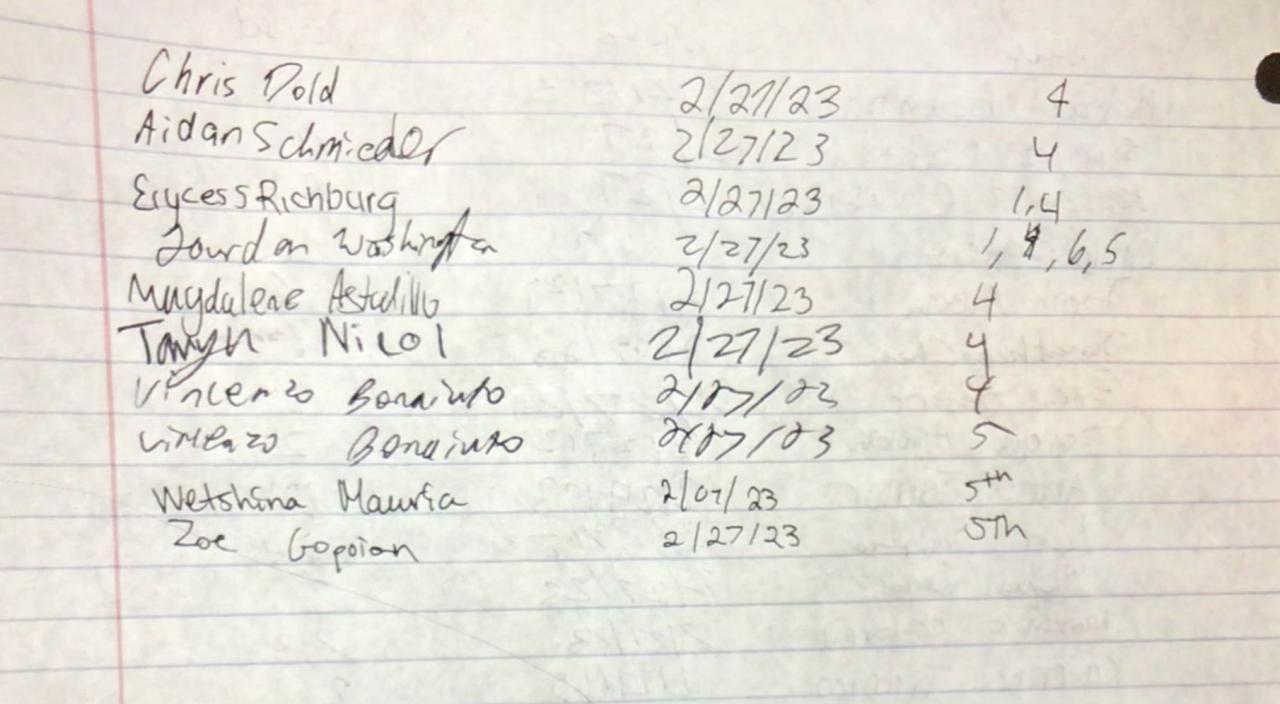 Chris Dold 2/27/23 4
Aidan Schmieder 2/27/23 4
Erycess Richburg 2/27/23 1,4
Jourdan Washington 2/27/23 1, 4, 6, 5
Magdalene Astudillo 2/27/23 4
Taryn Nicol 2/27/23 4
Vincenzo Bonaiuto 2/27/23 4
Vincenzo Bonaiuto 2/27/23 5
Wetshina Mauria 2/07/23 5th
Zoe Gopoian 2/27/23 5Th